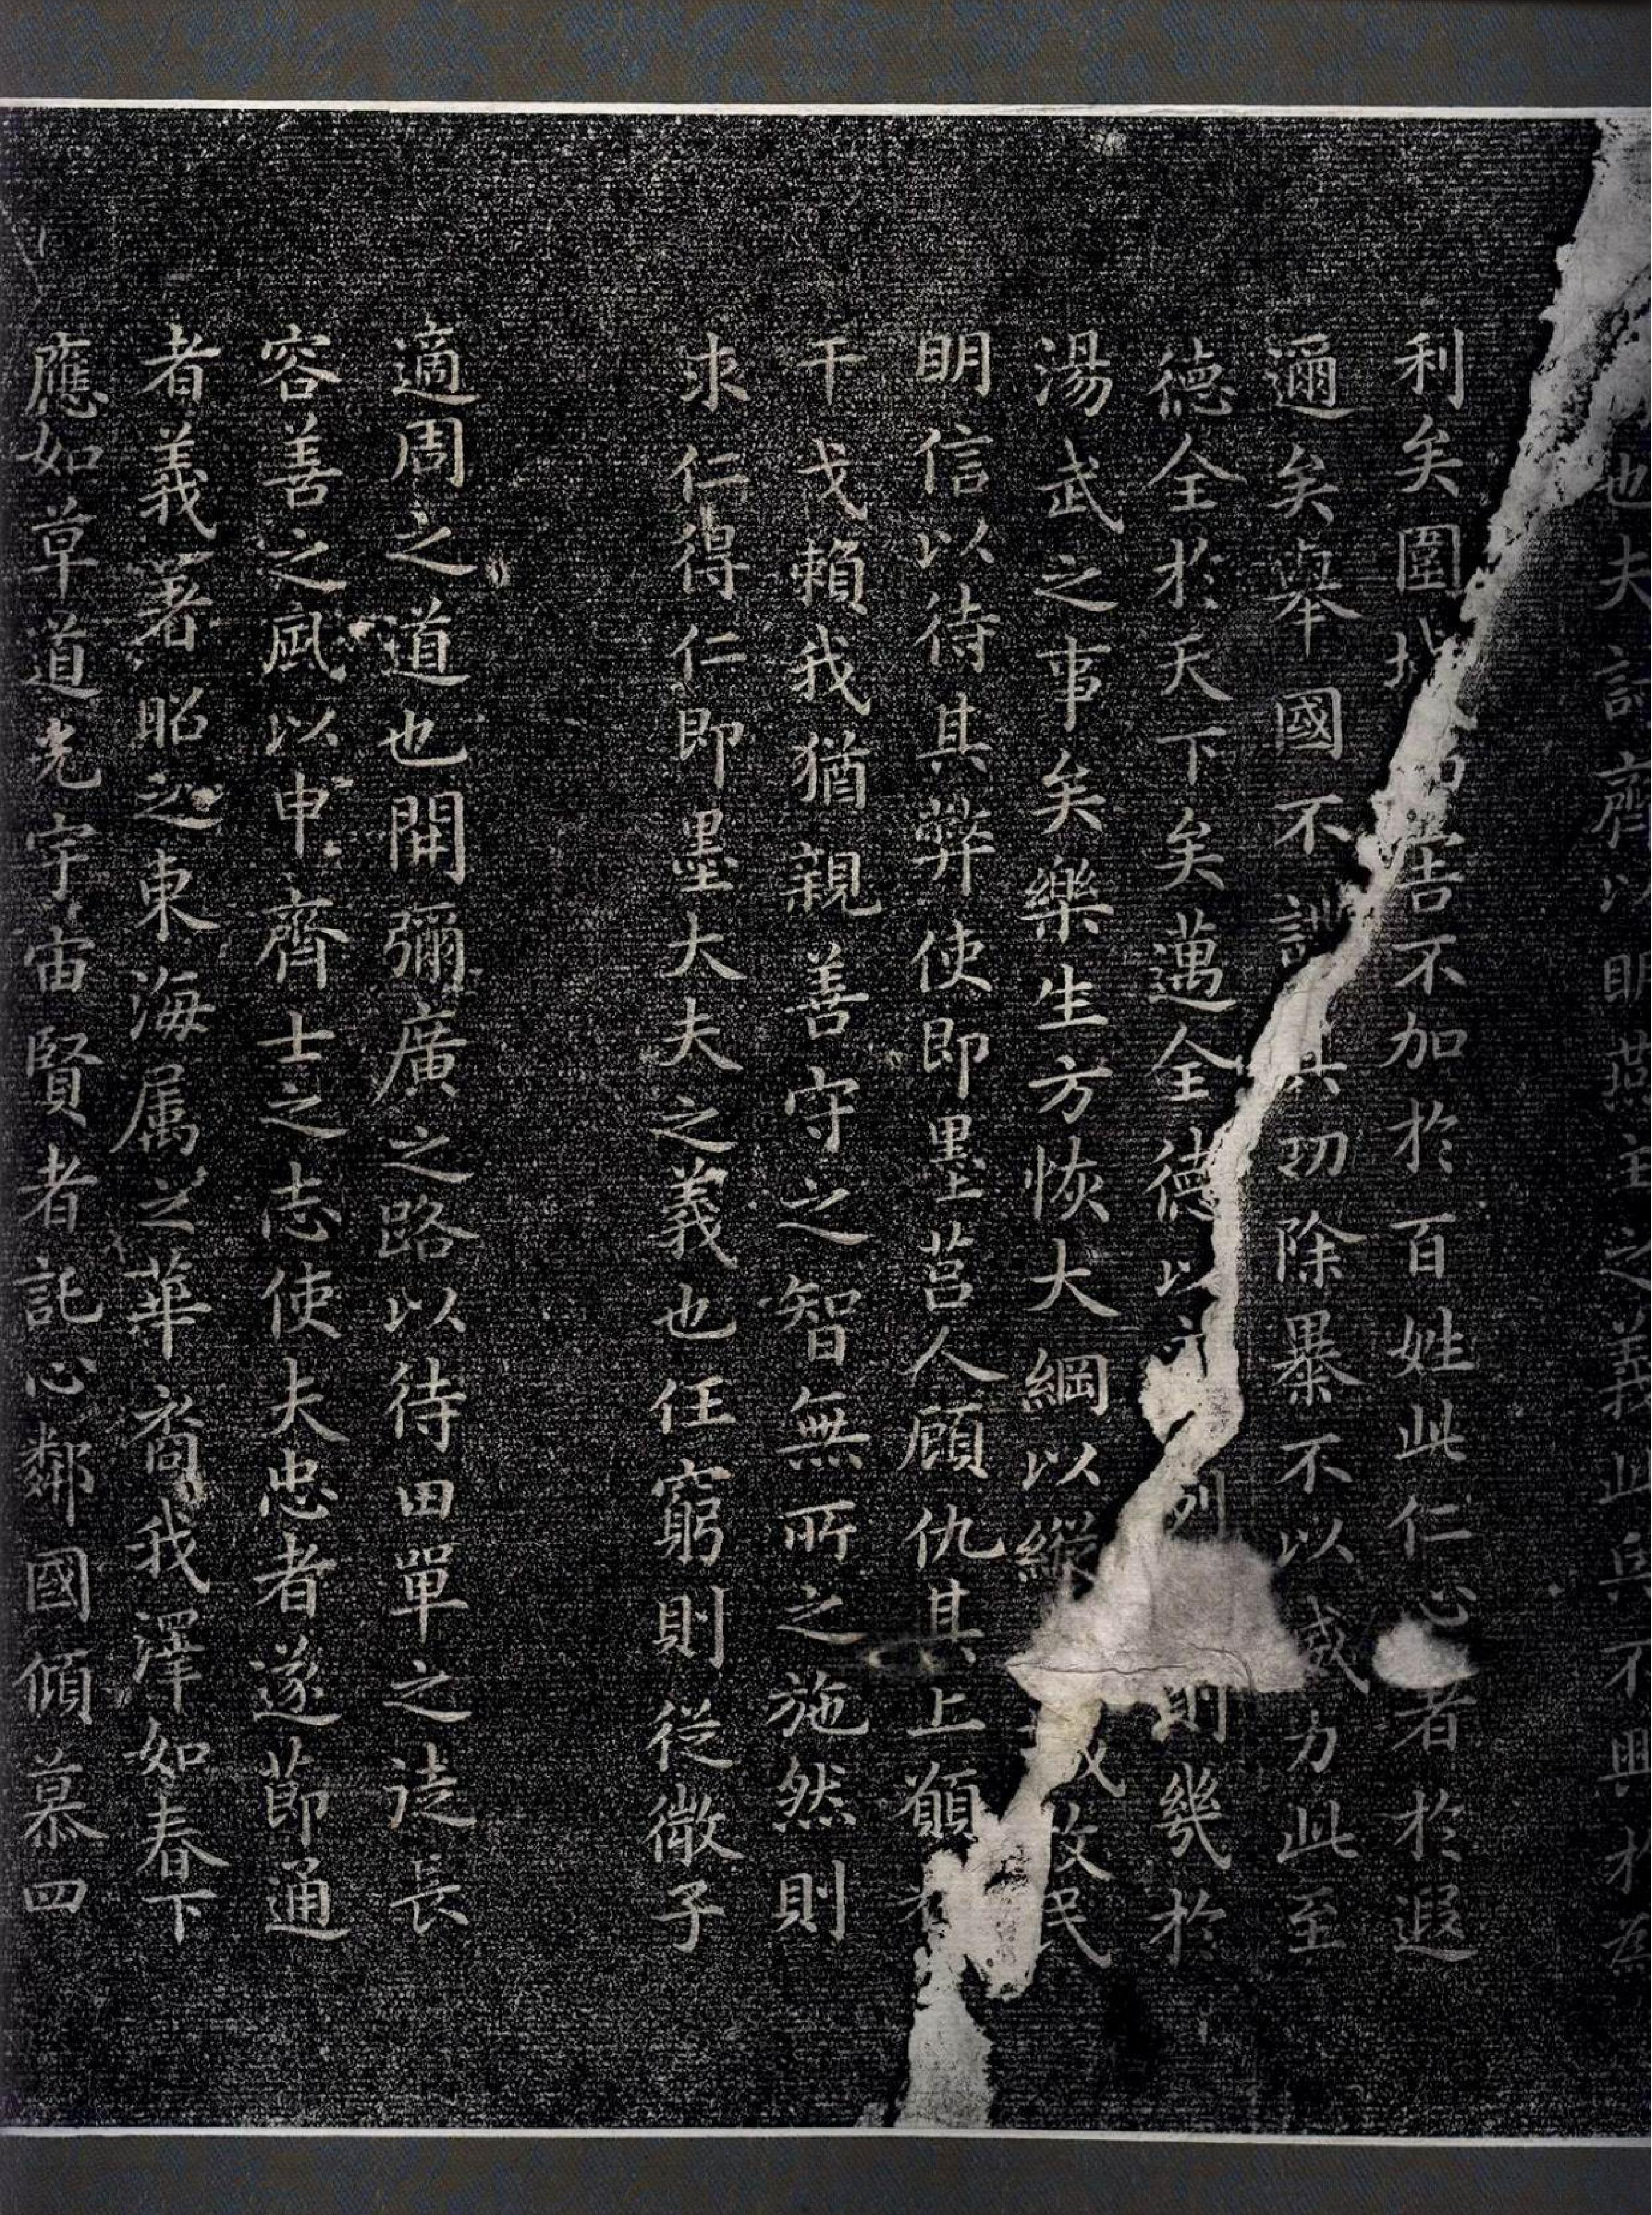 也夫討齊以明燕主之義此兵不興於為
利矣圍城而害不加於百姓此仁心著於遐
邇矣舉國不謀其功除暴不以威力此至
德全於天下矣邁全德以率列國則幾於
湯武之事矣樂生方恢大綱以縱二城收民
明信以待其弊使即墨莒人顧仇其上願釋
干戈賴我猶親善守之智無所之施然則
求仁得仁即墨大夫之義也任窮則從微子
適周之道也開彌廣之路以待田單之徒長
容善之風以申齊士之志使夫忠者遂節通
者義著昭之東海屬之華裔我澤如春下
應如草道光宇宙賢者託心鄰國傾慕四